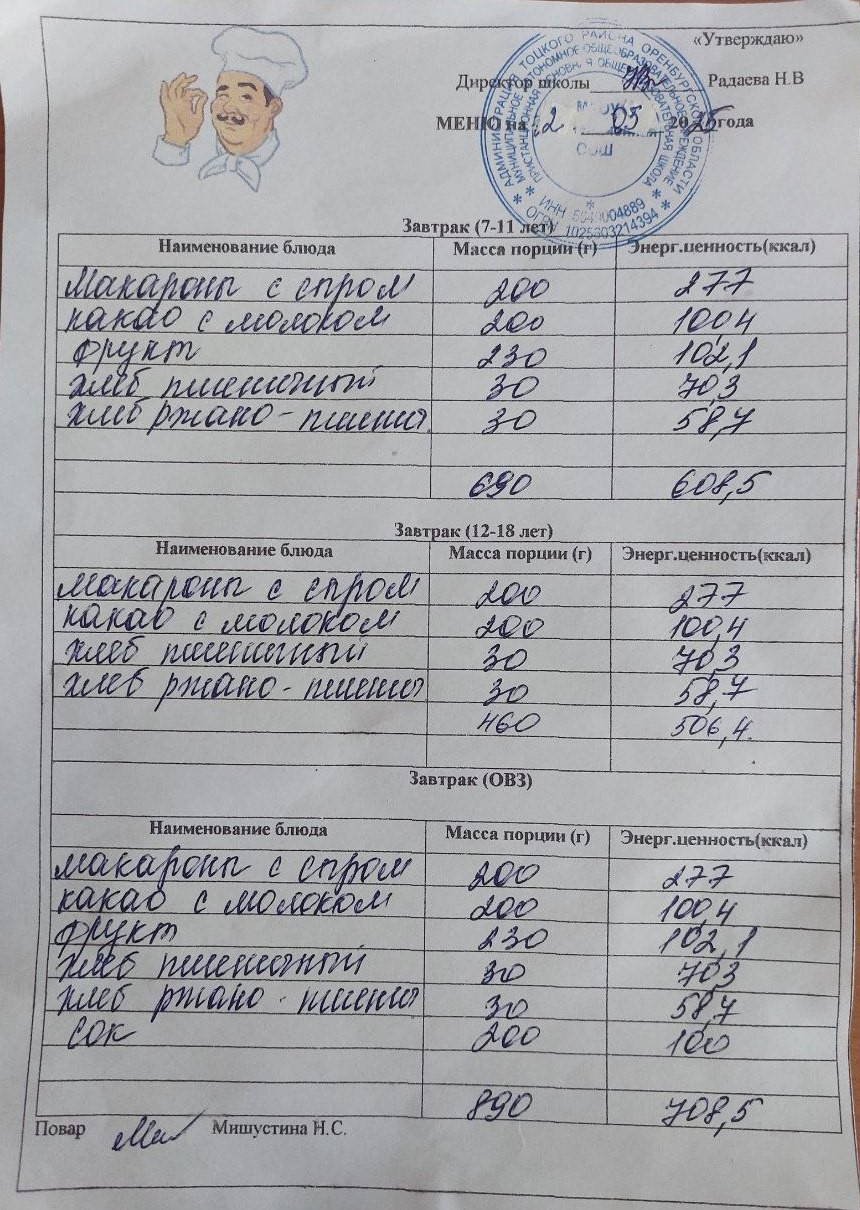 «Утверждаю»
Директор школы Радаева Н.В
МЕНЮ на 2 05 2025года
АДМИНИСТРАЦИЯ ТОЦКОГО РАЙОНА ОРЕНБУРГСКОЙ ОБЛАСТИ
ПРИСТАНЦИОННАЯ ОСНОВНАЯ ОБЩЕОБРАЗОВАТЕЛЬНАЯ ШКОЛА
ООШ
ИНН 5649004889
ОГРН 1025603214394
Завтрак (7-11 лет)
Наименование блюда Масса порции (г) Энерг.ценность(ккал)
Макароны с сыром 200 277
какао с молоком 200 100,4
фрукт 230 102,1
хлеб пшеничный 30 70,3
хлеб ржано-пшенич 30 58,7
690 608,5
Завтрак (12-18 лет)
Наименование блюда Масса порции (г) Энерг.ценность(ккал)
макароны с сыром 200 277
какао с молоком 200 100,4
хлеб пшеничный 30 70,3
хлеб ржано-пшенич 30 58,7
460 506,4.
Завтрак (ОВЗ)
Наименование блюда Масса порции (г) Энерг.ценность(ккал)
макароны с сыром 200 277
какао с молоком 200 100,4
фрукт 230 102,1
хлеб пшеничный 30 70,3
хлеб ржано-пшенич 30 58,7
сок 200 100
890 708,5
Повар Мишустина Н.С.